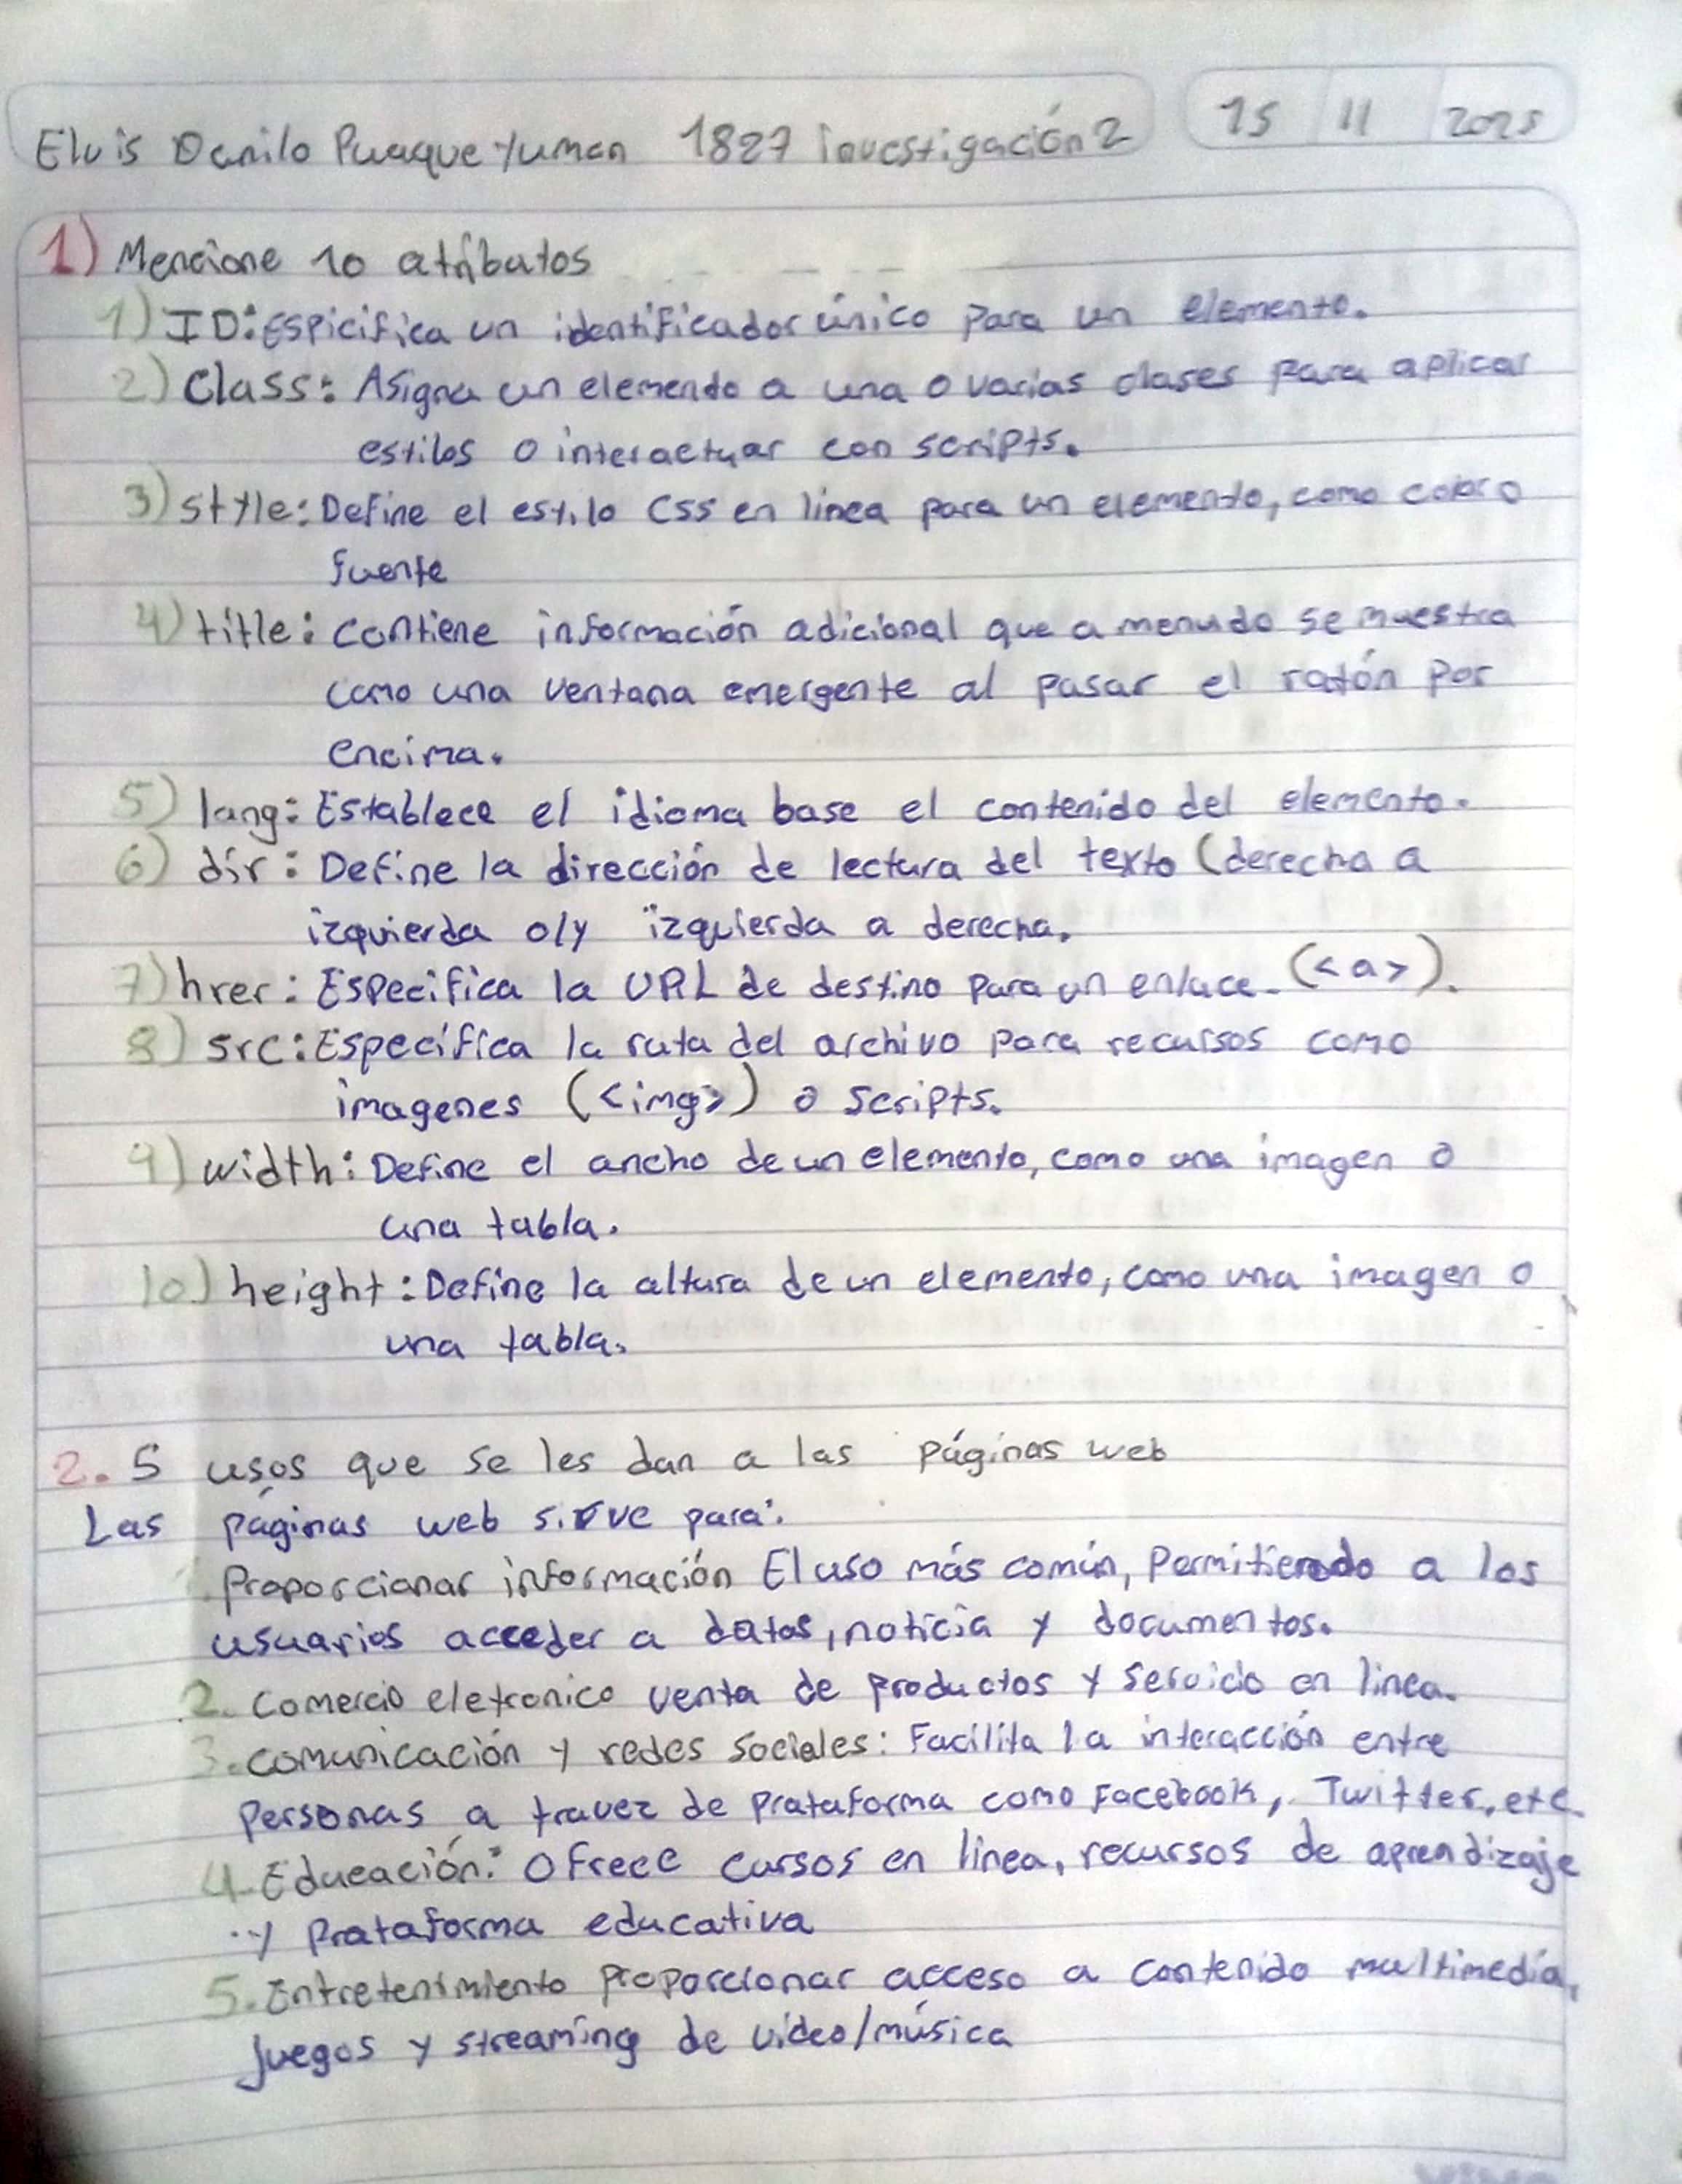 Elvis Danilo Puaque Yuman 1827 investigación 2 15 11 2025
1) Mencione 10 atributos
1) ID: Espicifica un identificador único para un elemento.
2) Class: Asigna un elemento a una o varias clases para aplicar
estilos o interactuar con scripts.
3) style: Define el estilo CSS en línea para un elemento, como color o
fuente
4) title: contiene información adicional que a menudo se muestra
como una ventana emergente al pasar el ratón por
encima.
5) lang: Establece el idioma base el contenido del elemento.
6) dir: Define la dirección de lectura del texto (derecha a
izquierda o/y izquierda a derecha.
7) hrer: Especifica la URL de destino para un enlace. (<a>).
8) src: Especifica la ruta del archivo para recursos como
imagenes (<img>) o scripts.
9) width: Define el ancho de un elemento, como una imagen o
una tabla.
10) height: Define la altura de un elemento, como una imagen o
una tabla.
2. 5 usos que se les dan a las páginas web
Las páginas web sirve para:
Proporcionar información El uso más común, Permitiendo a los
usuarios acceder a datos, noticia y documentos.
2. Comercio eletronico venta de productos y servicio en linea.
3. comunicación y redes sociales: Facilita la interacción entre
personas a travez de prataforma como Facebook, Twitter, etc.
4. Educación: Ofrece cursos en linea, recursos de aprendizaje
y prataforma educativa
5. Entretenimiento proporcionar acceso a contenido multimedia,
juegos y streaming de video/música